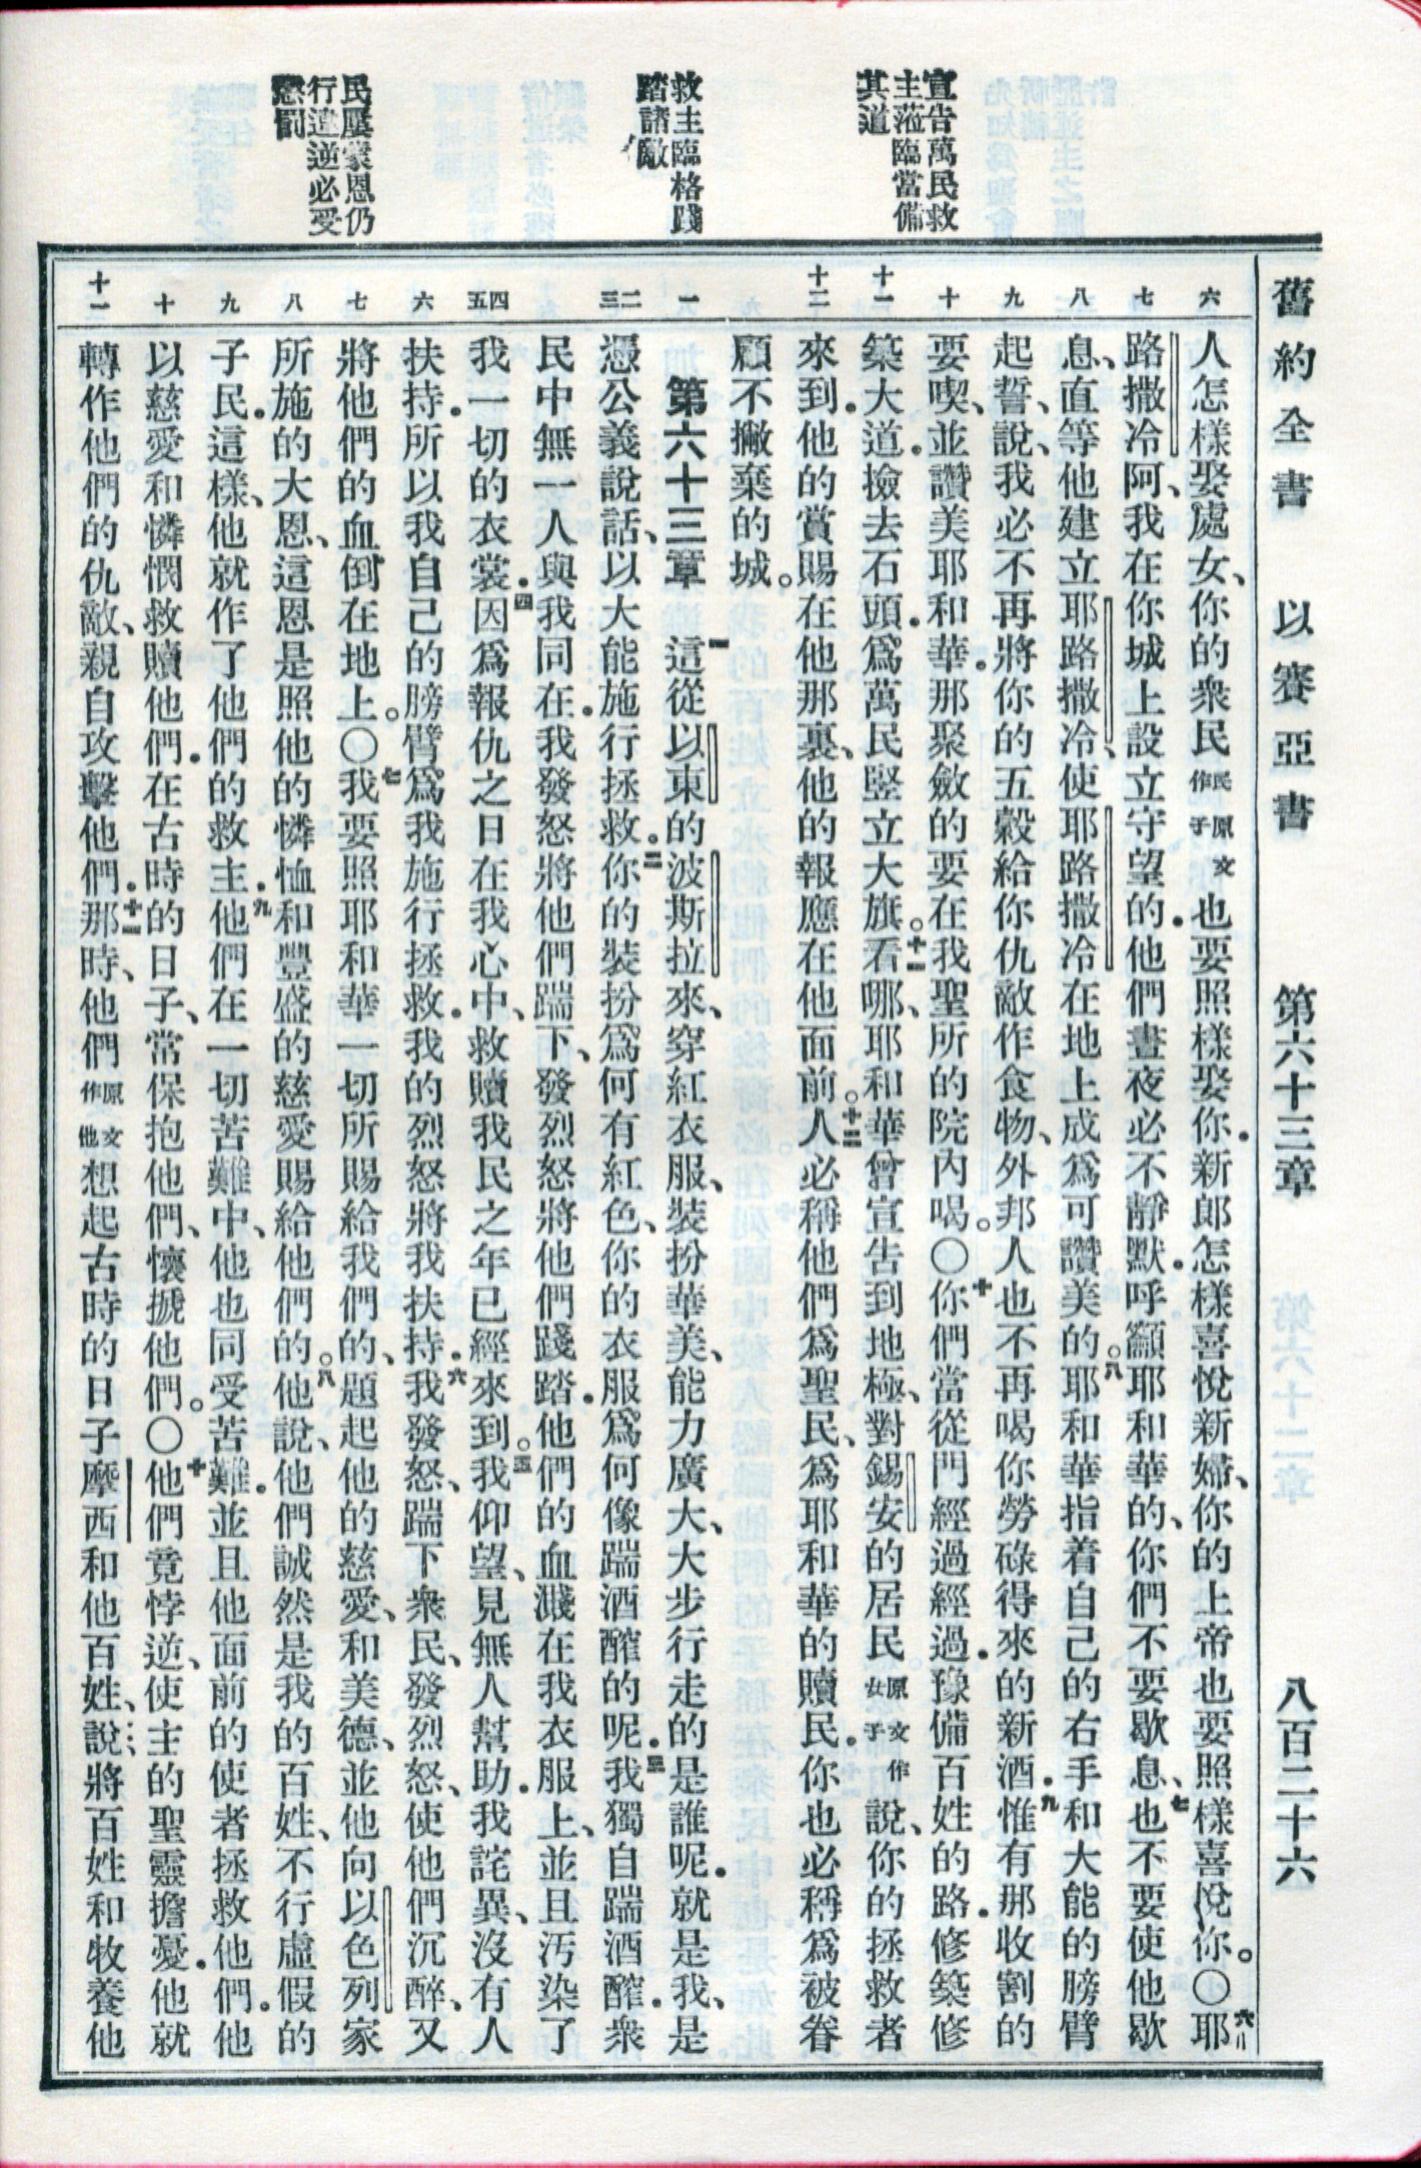 舊約全書 以賽亞書 第六十三章 八百二十六
宣告萬民救
主蒞臨當備
其道
救主臨格踐
踏諸敵
民屢蒙恩仍
行違逆必受
懲罰
六
人怎樣娶處女、你的衆民民原文作子也要照樣娶你．新郎怎樣喜悅新婦、你的上帝也要照樣喜悅你。〇六耶
七
路撒冷阿、我在你城上設立守望的．他們晝夜必不靜默．呼籲耶和華的、你們不要歇息、七也不要使他歇
八
息、直等他建立耶路撒冷、使耶路撒冷在地上成爲可讚美的。八耶和華指着自己的右手和大能的膀臂
九
起誓、說、我必不再將你的五穀給你仇敵作食物、外邦人也不再喝你勞碌得來的新酒．九惟有那收割的
十
要喫、並讚美耶和華．那聚斂的要在我聖所的院內喝。〇十你們當從門經過經過．豫備百姓的路．修築修
十一
築大道．撿去石頭．爲萬民豎立大旗。十一看哪、耶和華曾宣告到地極、對錫安的居民原文作女子說、你的拯救者
十二
來到．他的賞賜在他那裏、他的報應在他面前。十二人必稱他們爲聖民、爲耶和華的贖民．你也必稱爲被眷
顧不撇棄的城。
一
第六十三章 一這從以東的波斯拉來、穿紅衣服、裝扮華美、能力廣大、大步行走的是誰呢．就是我、是
二三
憑公義說話、以大能施行拯救。二你的裝扮爲何有紅色、你的衣服爲何像踹酒醡的呢．三我獨自踹酒醡．衆
民中無一人與我同在．我發怒將他們踹下、發烈怒將他們踐踏．他們的血濺在我衣服上、並且汚染了
四五
我一切的衣裳．四因爲報仇之日在我心中、救贖我民之年已經來到。五我仰望、見無人幫助．我詫異、沒有人
六
扶持．所以我自己的膀臂爲我施行拯救．我的烈怒將我扶持．六我發怒、踹下衆民、發烈怒、使他們沉醉、又
七
將他們的血倒在地上。〇七我要照耶和華一切所賜給我們的、題起他的慈愛、和美德、並他向以色列家
八
所施的大恩、這恩是照他的憐恤和豐盛的慈愛賜給他們的。八他說、他們誠然是我的百姓、不行虛假的
九
子民．這樣、他就作了他們的救主．九他們在一切苦難中、他也同受苦難．並且他面前的使者拯救他們。他
十
以慈愛和憐憫救贖他們．在古時的日子、常保抱他們、懷搋他們。〇十他們竟悖逆、使主的聖靈擔憂．他就
十一
轉作他們的仇敵、親自攻擊他們．十一那時、他們原文作他想起古時的日子摩西和他百姓、說、將百姓和牧養他